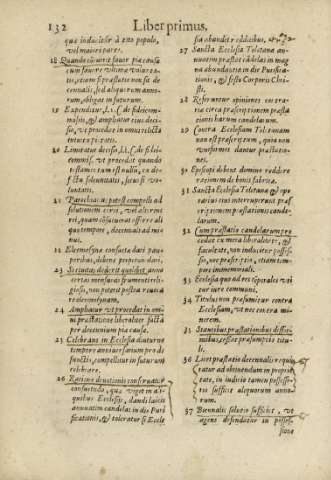 132 Liber primus,
que inducitur à toto populo,
vel maiore parte.
18 Quando cõsuerit favore pia causa
cum favore vltima volunta-
tis, etiam si præstatio non sit de-
cennalis, sed aliquorum anno-
rum, obligat in futurum.
19 Expenditur, Li. f. de fideicom-
missis, & ampliatur eius deci-
sio, vt procedat in
20 Limitatur decisio, Li. f. de fidei-
commiss. vt procedat quando
testamentum est nullũ, ex de-
fectu solemnitatis, secus si vo-
luntatis.
21 Parochianus potest compelli ad
solutionem cerei, vel alterius
rei, quam consueuit offerre ali-
quo tempore, decennali ad mi-
nus.
22 Eleemosyna consueta dari pau-
peribus, debet perpetuo dari.
23 Si ciuitas dederit quolibet anno
certas mensuras frumenti reli-
giosis, non poterit postea reuoca-
re eleemosynam.
24 Ampliatur vt procedat in om-
ni præstatione liberaliter facta
per decennium pia causa.
25 Celebrans in Ecclesia diuturno
tempore anniuersarium pro de-
functis, compellitur in futurum
celebrare.
26 Ratione deuotionis conseruatur
consuetudo, quæ viget in ali-
quibus Ecclesijs, dandi laicis
annuatim candelas in die Puri
ficationis, & toleratur si Eccle
sia abundet redditibus.
27 Sancta Ecclesia Toletana an-
nuatim præstat cãdelas in mag
na abundantia in die Purifica-
tionis, & festo Corporis Chri-
sti.
28 Referuntur opiniones contra-
ria circa præscriptionem præsta-
tionis harum candelarum.
29 Contra Ecclesiam Toletanam
non est præscriptum, quia non
vniformes dantur præstatio-
nes.
30 Episcopi debent domino reddere
rationem de bonis fabrica.
31 Sancta Ecclesia Toletana & ope-
rarius eius interruperunt præs-
criptionem præstationis cande-
larum.
32 Cum præstatio candelarum pro-
cedat ex mera liberalitate, &
facultate, non inducitur posses-
sio, nec præscriptio, etiam tem-
pore immemoriali.
33 Ecclesia quo ad res temporales vti
tur iure communi.
34 Titulus non præsumitur contra
Ecclesiam, vt nec contra mi-
norem.
35 Stantibus præstationibus diffor-
mibus, cessat præsumptio titu-
li.
36 Licet præstatio decennalis requira
tur ad obtinendum in proprie-
tate, in iudicio tamen possesso-
rio sufficit aliquorum anno-
rum.
37 Biennalis solutio sufficit, vt
agens defendatur in posses-
sione